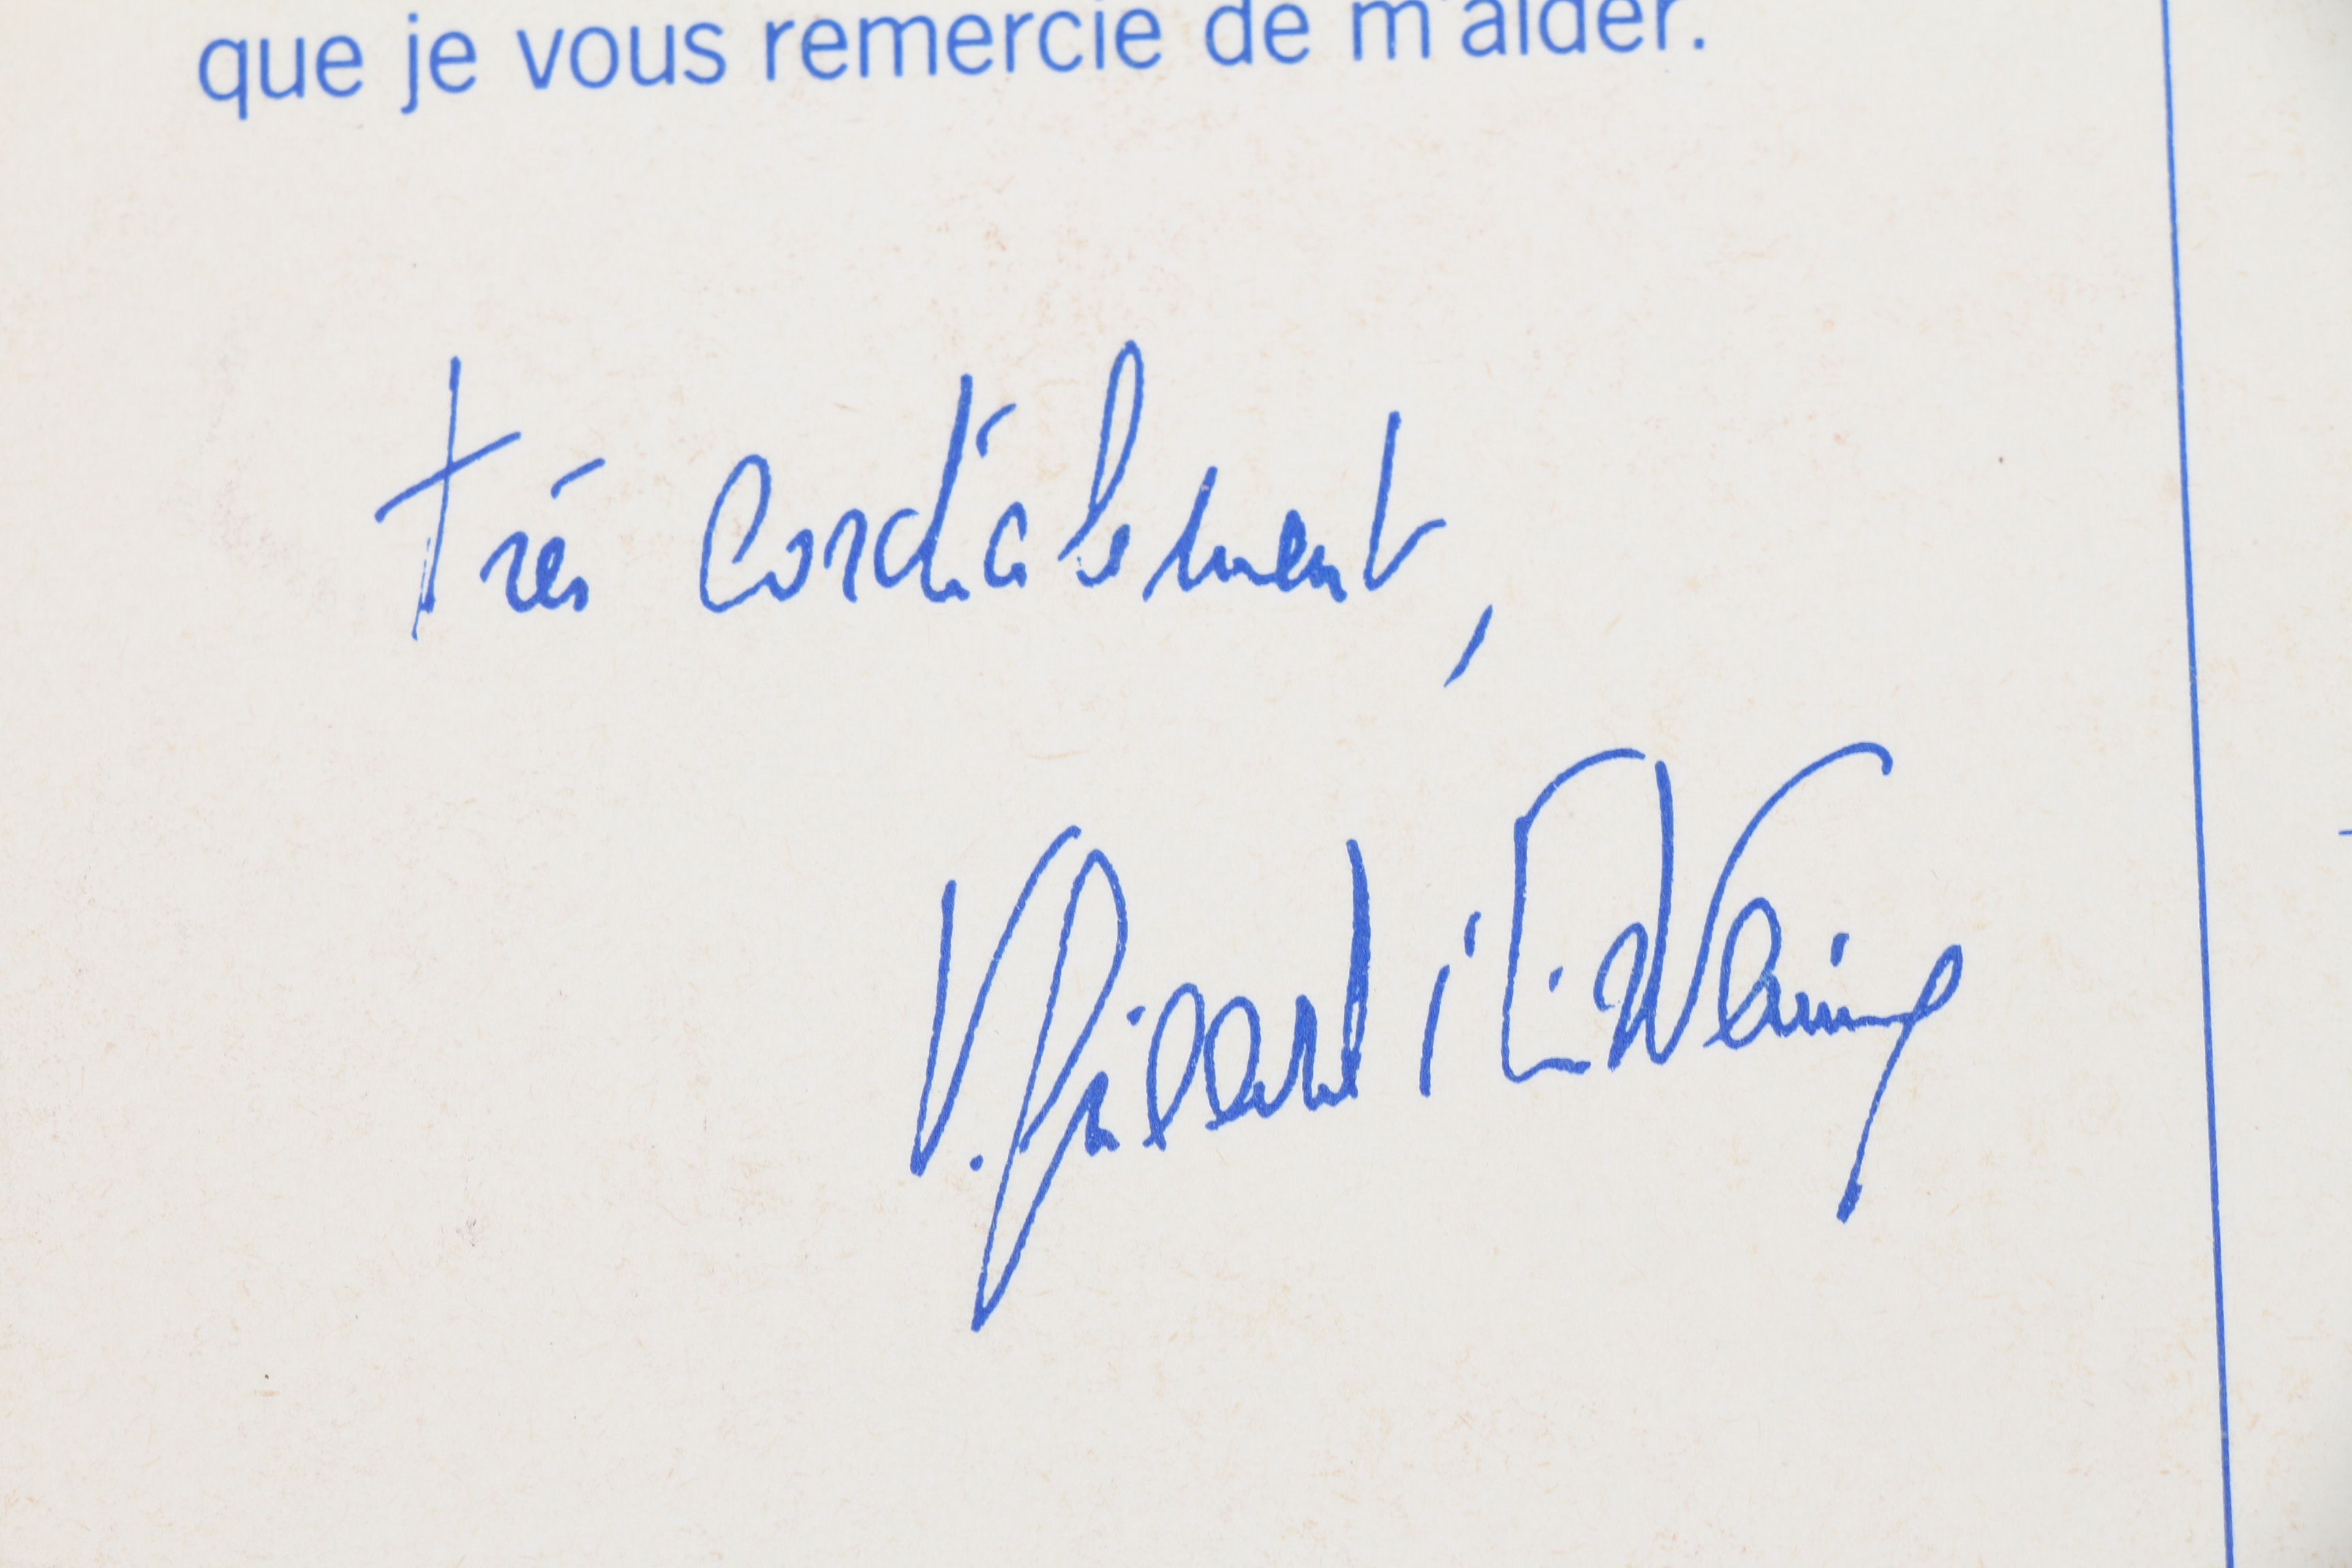 que je vous remercie de m'aider.
très cordialement,
V. Giscard d'Estaing